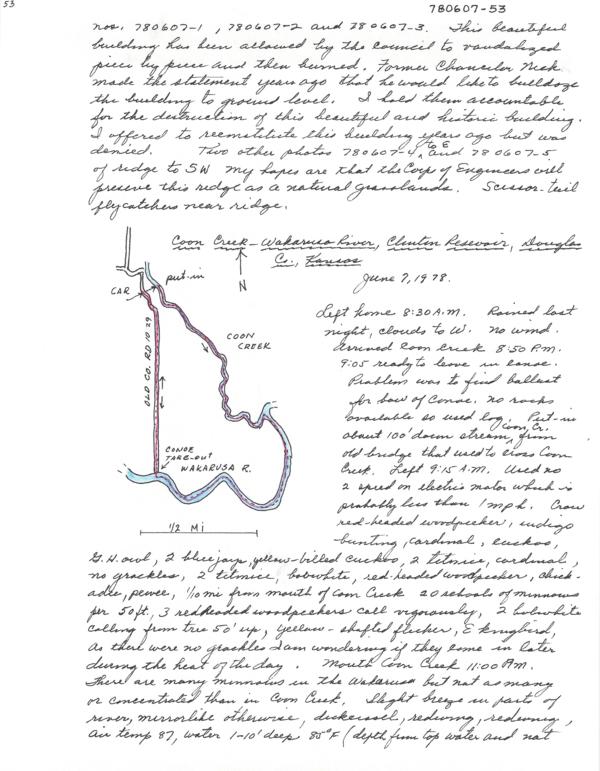 53
780607-53
nos. 780607-1, 780607-2 and 780607-3. This beautiful
building has been allowed by the council to vandalized
piece by piece and then burned. Former Chancelor Nick
made the statement years ago that he would like to bulldoze
the building to ground level. I hold them accountable
for the destruction of this beautiful and historic building.
I offered to reconstitute this building years ago but was
denied. Two other photos 780607-4, to E and 780607-5
of ridge to SW my hopes are that the Corp of Engineers will
preserve this ridge as a natural grasslands. Scissor-tail
flycatchers near ridge.
Coon Creek-Wakarusa River, Clinton Resevoir, Douglas
Co., Kansas
June 7, 1978.
put-in
N
CAR
COON
CREEK
OLD CO. RD 10 29
CANOE
TAKE-OUT
WAKARUSA R.
1/2 Mi
Left home 8:30 A.M. Rained last
night, clouds to W. No wind.
Arrived Coon Creek 8:50 P.M.
9:05 ready to leave in canoe.
Problem was to find ballast
for bow of canoe. no rocks
available so used log. Put-in
about 100' down stream, Coon Cr. from
old bridge that used to cross Coon
Creek. Left 9:15 A.M. Used no
2 speed on electric motor which is
probably less than 1 mph. Crow
red-headed woodpecker, indigo
bunting, cardinal, cuckoo,
G. H. owl, 2 blue jays, yellow-billed cuckoo, 2 titmice, cardinal,
no grackles, 2 titmice, bobwhite, red-headed woodpecker, chick-
adee, pewee, 1/10 mi from mouth of Coon Creek 20 schools of minnows
per 50 ft, 3 redheaded woodpeckers call vigorously, 2 bobwhite
calling from tree 50' up, yellow-shafted flicker, E kingbird,
As there were no grackles I am wondering if they come in later
during the heat of the day. Mouth Coon Creek 11:00 AM.
There are many minnows in the Wakarusa but not as many
or concentrated than in Coon Creek. Slight breeze in parts of
river, mirrorlike otherwise, dickcissel, redwing, redwing,
air temp 87, water 1-10' deep 85°F (depth from top water and not